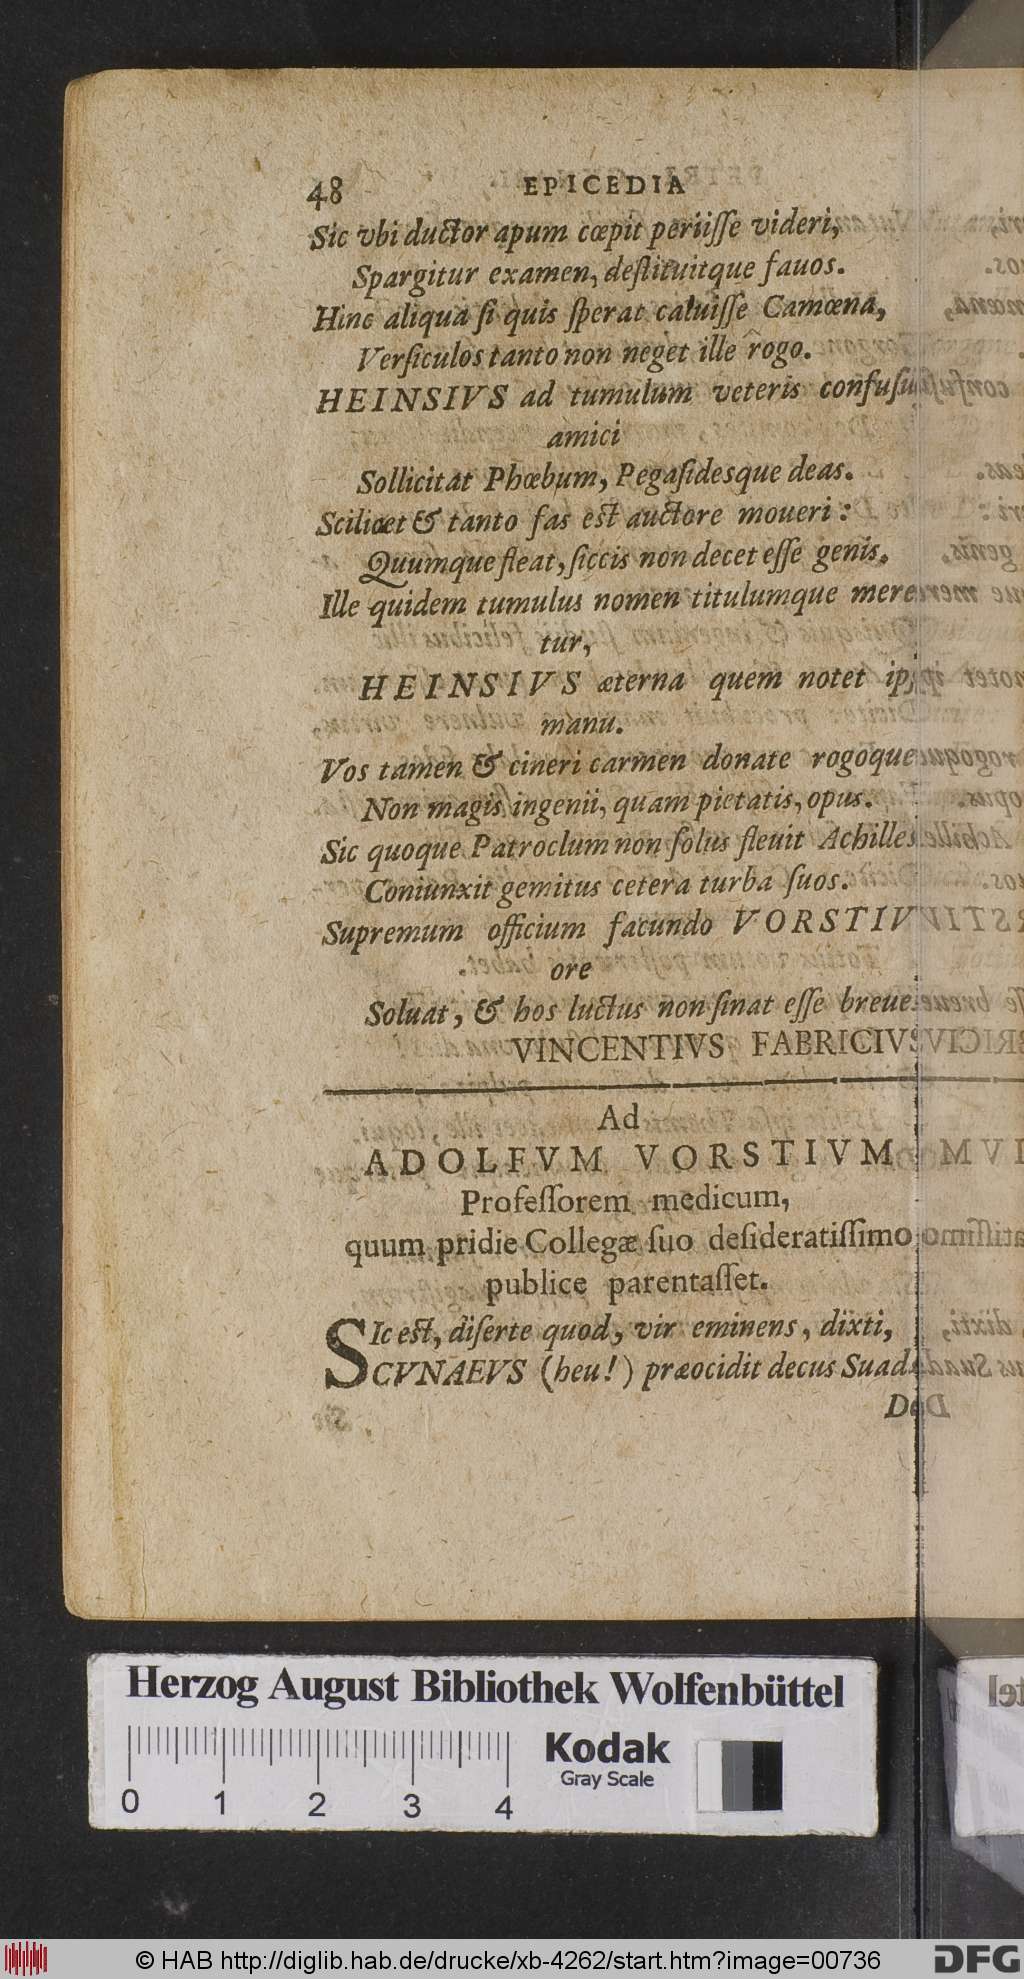 48 EPICEDIA
Sic vbi ductor apum cœpit periisse videri,
Spargitur examen, destituitque fauos.
Hinc aliqua si quis sperat caluisse Camœna,
Versiculos tanto non neget ille rogo.
HEINSIVS ad tumulum veteris confusu
amici
Sollicitat Phœbum, Pegasidesque deas.
Scilicet & tanto fas est auctore moueri:
Quumque fleat, siccis non decet esse genis.
Ille quidem tumulus nomen titulumque mere
tur,
HEINSIVS æterna quem notet ip
manu.
Vos tamen & cineri carmen donate rogoque
Non magis ingenii, quam pietatis, opus.
Sic quoque Patroclum non solus fleuit Achilles
Coniunxit gemitus cetera turba suos.
Supremum officium facundo VORSTIV
ore
Soluat, & hos luctus non sinat esse breue
VINCENTIVS FABRICIVS
Ad
ADOLFVM VORSTIVM
Professorem medicum,
quum pridie Collegæ suo desideratissimo
publice parentasset.
SIc est, diserte quod, vir eminens, dixti,
CVNAEVS (heu!) præocidit decus Suad
De
Herzog August Bibliothek Wolfenbüttel
Kodak
Gray Scale
0 1 2 3 4
© HAB http://diglib.hab.de/drucke/xb-4262/start.htm?image=00736
DFG